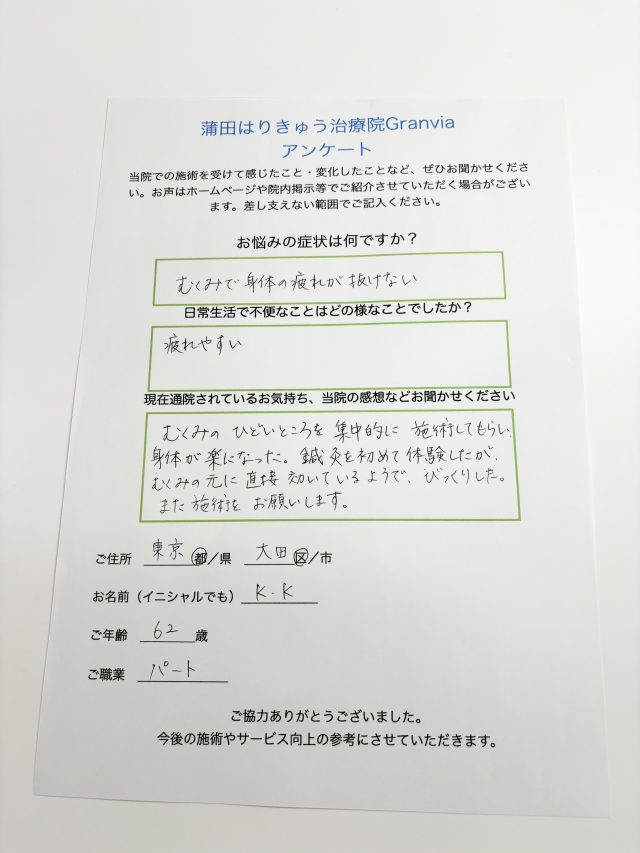 蒲田はりきゅう治療院Granvia
アンケート
当院での施術を受けて感じたこと・変化したことなど、ぜひお聞かせくださ
い。お声はホームページや院内掲示等でご紹介させていただく場合がござい
ます。差し支えない範囲でご記入ください。
お悩みの症状は何ですか？
むくみで身体の疲れが抜けない
日常生活で不便なことはどの様なことでしたか？
疲れやすい
現在通院されているお気持ち、当院の感想などお聞かせください
むくみの ひどいところを 集中的に 施術してもらい、
身体が楽になった。鍼灸を初めて体験したが、
むくみの元に直接効いているようで、びっくりした。
また施術を お願いします。
ご住所 東京 都/県 大田 区/市
お名前（イニシャルでも） K.K
ご年齢 62 歳
ご職業 パート
ご協力ありがとうございました。
今後の施術やサービス向上の参考にさせていただきます。